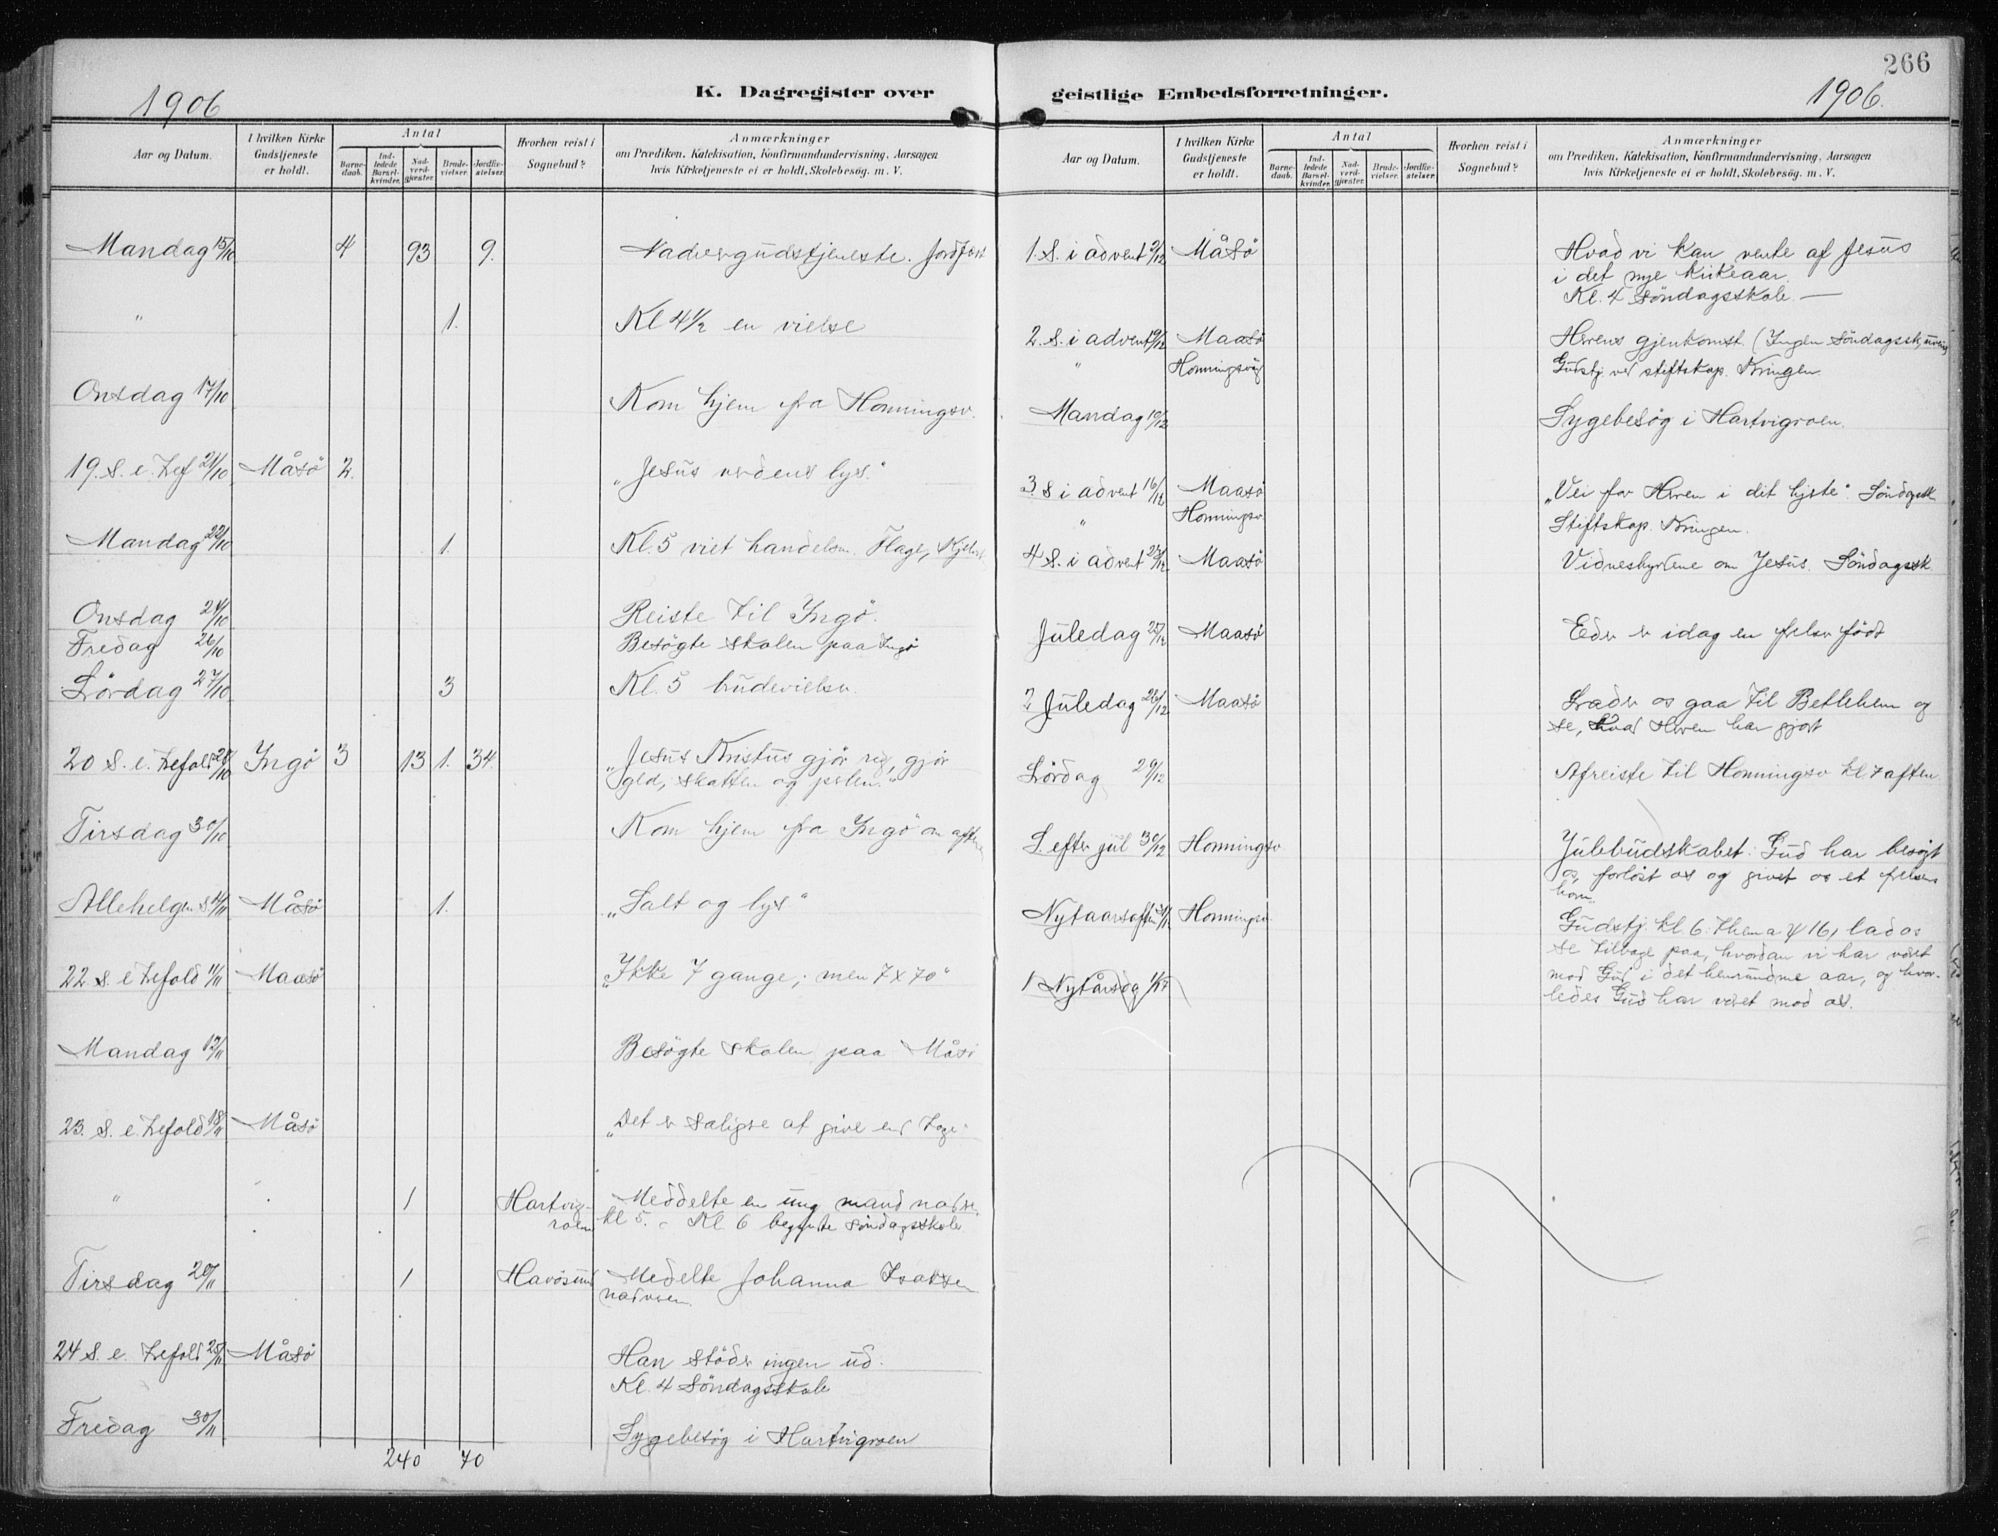 266
1906
K. Dagregister over
geistlige Embedsforretninger.
1906.
Aar og Datum.
I hvilken Kirke Gudstjeneste er holdt.
Antal
Barne-daab.
Ind-ledede Barsel-kvinder.
Nad-verd-gjæster.
Brude-vielser.
Jordfæ-stelser.
Hvorhen reist i Sognebud?
Anmærkninger
om Prædiken, Katekisation, Konfirmandundervisning, Aarsagen
hvis Kirketjeneste ei er holdt, Skolebesøg. m. V.
Mandag 15/10 4 93 9. Nadvergudstjeneste. Jordfæst
" 1. Kl 4½ en vielse
Onsdag 17/10 Kom hjem fra Honningsv.
19. S. e. Tref 21/10 Måsö 2. "Jesus verdens lys."
Mandag 22/10 1. Kl. 5 viet handelsm. Hage,
Onsdag 24/10 Reiste til Ingö.
Fredag 26/10 Besögte skolen paa Ingö
Lördag 27/10 3 Kl. 5 brudevielser.
20 S. e. Trefold 28/10 Ingö 3 13 1. 34. "Jesus Kristus gjör rig, gjör
gld, skatten og perlen."
Tirsdag 30/10 Kom hjem fra Ingö om aften
Allehelgens 4/11 Måsö 1. "Salt og lys"
22 S. e Trefold 11/11 Maasö "Ikke 7 gange; men 7x70"
Mandag 12/11 Besögte skolen paa Måsö
23. S. e. Trefold 18/11 Måsö "Det er saligre at give end tage."
" " 1 Hartvig-
roen Meddelte en ung mand nadv.
kl 5. - Kl. 6 begyndte söndagsskole
Tirsdag 20/11 1 Havösund Medelte Johanna Isaksen
nadveren.
24 S. e. Trefold 25/11 Måsö Han stöder ingen ud.
Kl. 4 Söndagsskole
Fredag 30/11 Sygebesög i Hartvigroen
240 70
Aar og Datum.
I hvilken Kirke Gudstjeneste er holdt.
Antal
Barne-daab.
Ind-ledede Barsel-kvinder.
Nad-verd-gjæster.
Brude-vielser.
Jordfæ-stelser.
Hvorhen reist i Sognebud?
Anmærkninger
om Prædiken, Katekisation, Konfirmandundervisning, Aarsagen
hvis Kirketjeneste ei er holdt, Skolebesøg. m. V.
1. S. i advent 2/12 Måsö Hvad vi kan vente af Jesus
i det nye kirkeaar.
Kl. 4 söndagsskole. —
2. S. i advent Maasö Herrens gjenkomst. (Ingen söndagssk,
" Honningsvåg Gudstj. ved stiftskap. Kringen
Mandag 10/12 Sygebesög i Hartvigroen.
3. S i advent 16/12 Maasö "Vei for Herren i dit hjerte". Söndagssk
" Honningsv. Stiftskap. Kringen.
4 S. i advent 23/12 Maasö Vidnesbyrdene om Jesus. Söndagssk
Juledag 25/12 Maasö Eder er idag en frelser födt
2 Juledag 26/12 Maasö Lader os gaa til Betlehem og
se, hvad Herren har gjort
Lördag 29/12 Afreiste til Honningsv kl. 7 aften.
S. efter jul 30/12 Honningsv Julebudskabet: Gud har besögt
os, forlöst os og givet os et frelsens
horn"
Nytaarsaften Honningsv. Gudstj. kl. 6. Thema ψ 16, lad os
se tilbage paa, hvordan vi har været
mod Gud i det henrundne aar, og hvor-
ledes Gud har været mod os.
1 Nytårsdag 1/1